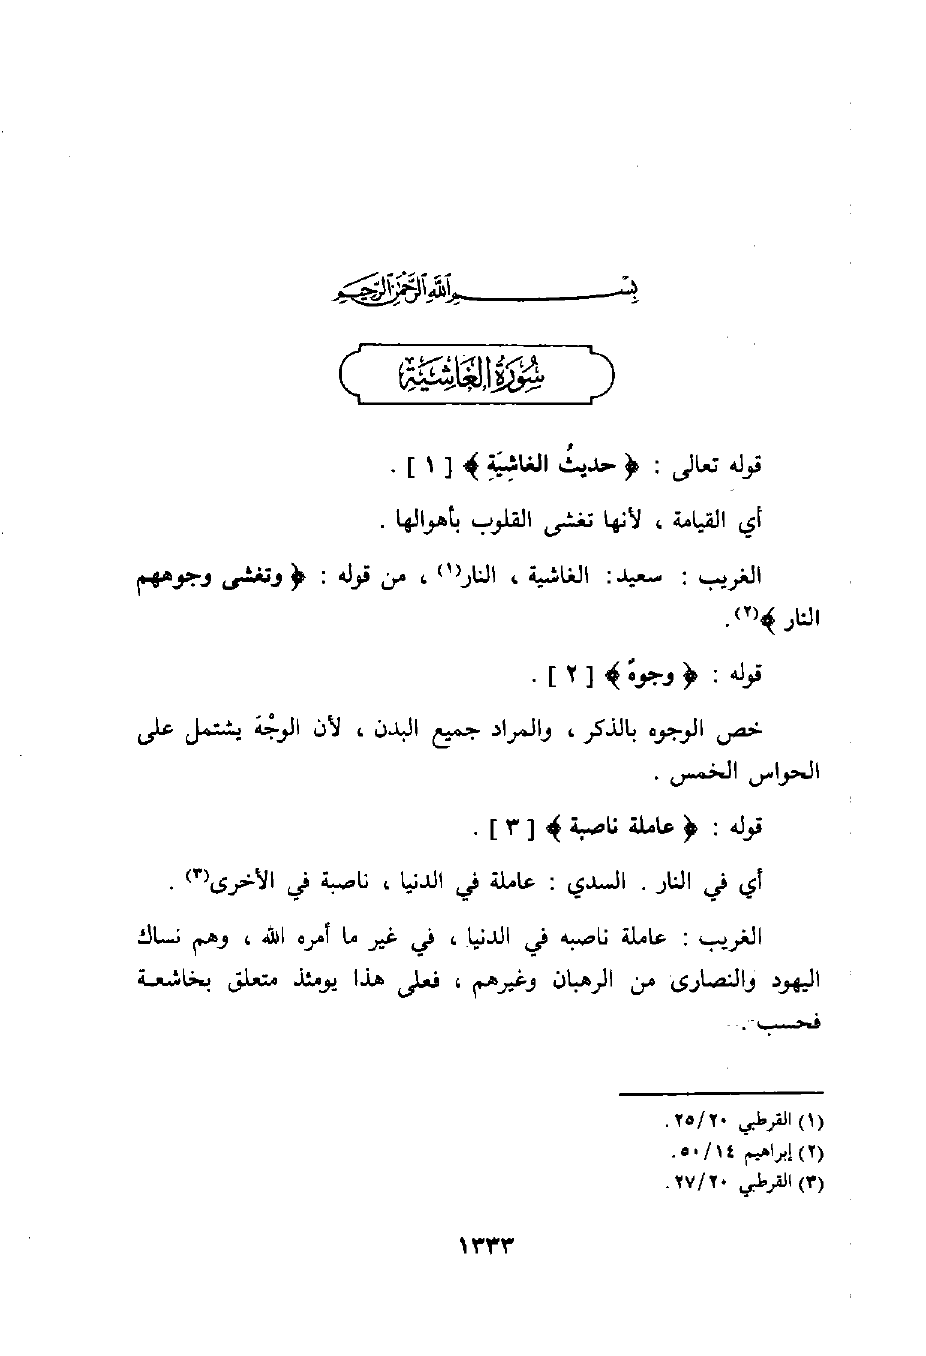 بِسْــــمِ اللَّهِ الرَّحْمَٰنِ الرَّحِيمِ
سُورَةُ الغَاشِيَةِ
قوله تعالى : ﴿ حديثُ الغاشِيَةِ ﴾ [ ١ ] .
أي القيامة ، لأنها تغشى القلوب بأهوالها .
الغريب : سعيد: الغاشية ، النار(١) ، من قوله : ﴿ وتغشى وجوههم
النار ﴾(٢).
قوله : ﴿ وجوهٌ ﴾ [ ٢ ] .
خص الوجوه بالذكر ، والمراد جميع البدن ، لأن الوجْهَ يشتمل على
الحواس الخمس .
قوله : ﴿ عاملة ناصبة ﴾ [ ٣ ] .
أي في النار . السدي : عاملة في الدنيا ، ناصبة في الأخرى(٣) .
الغريب : عاملة ناصبه في الدنيا ، في غير ما أمره الله ، وهم نساك
اليهود والنصارى من الرهبان وغيرهم ، فعلى هذا يومئذ متعلق بخاشعة
فحسب .
(١) القرطبي ٢٥/٢٠.
(٢) إبراهيم ٥٠/١٤.
(٣) القرطبي ٢٧/٢٠.
١٣٣٣